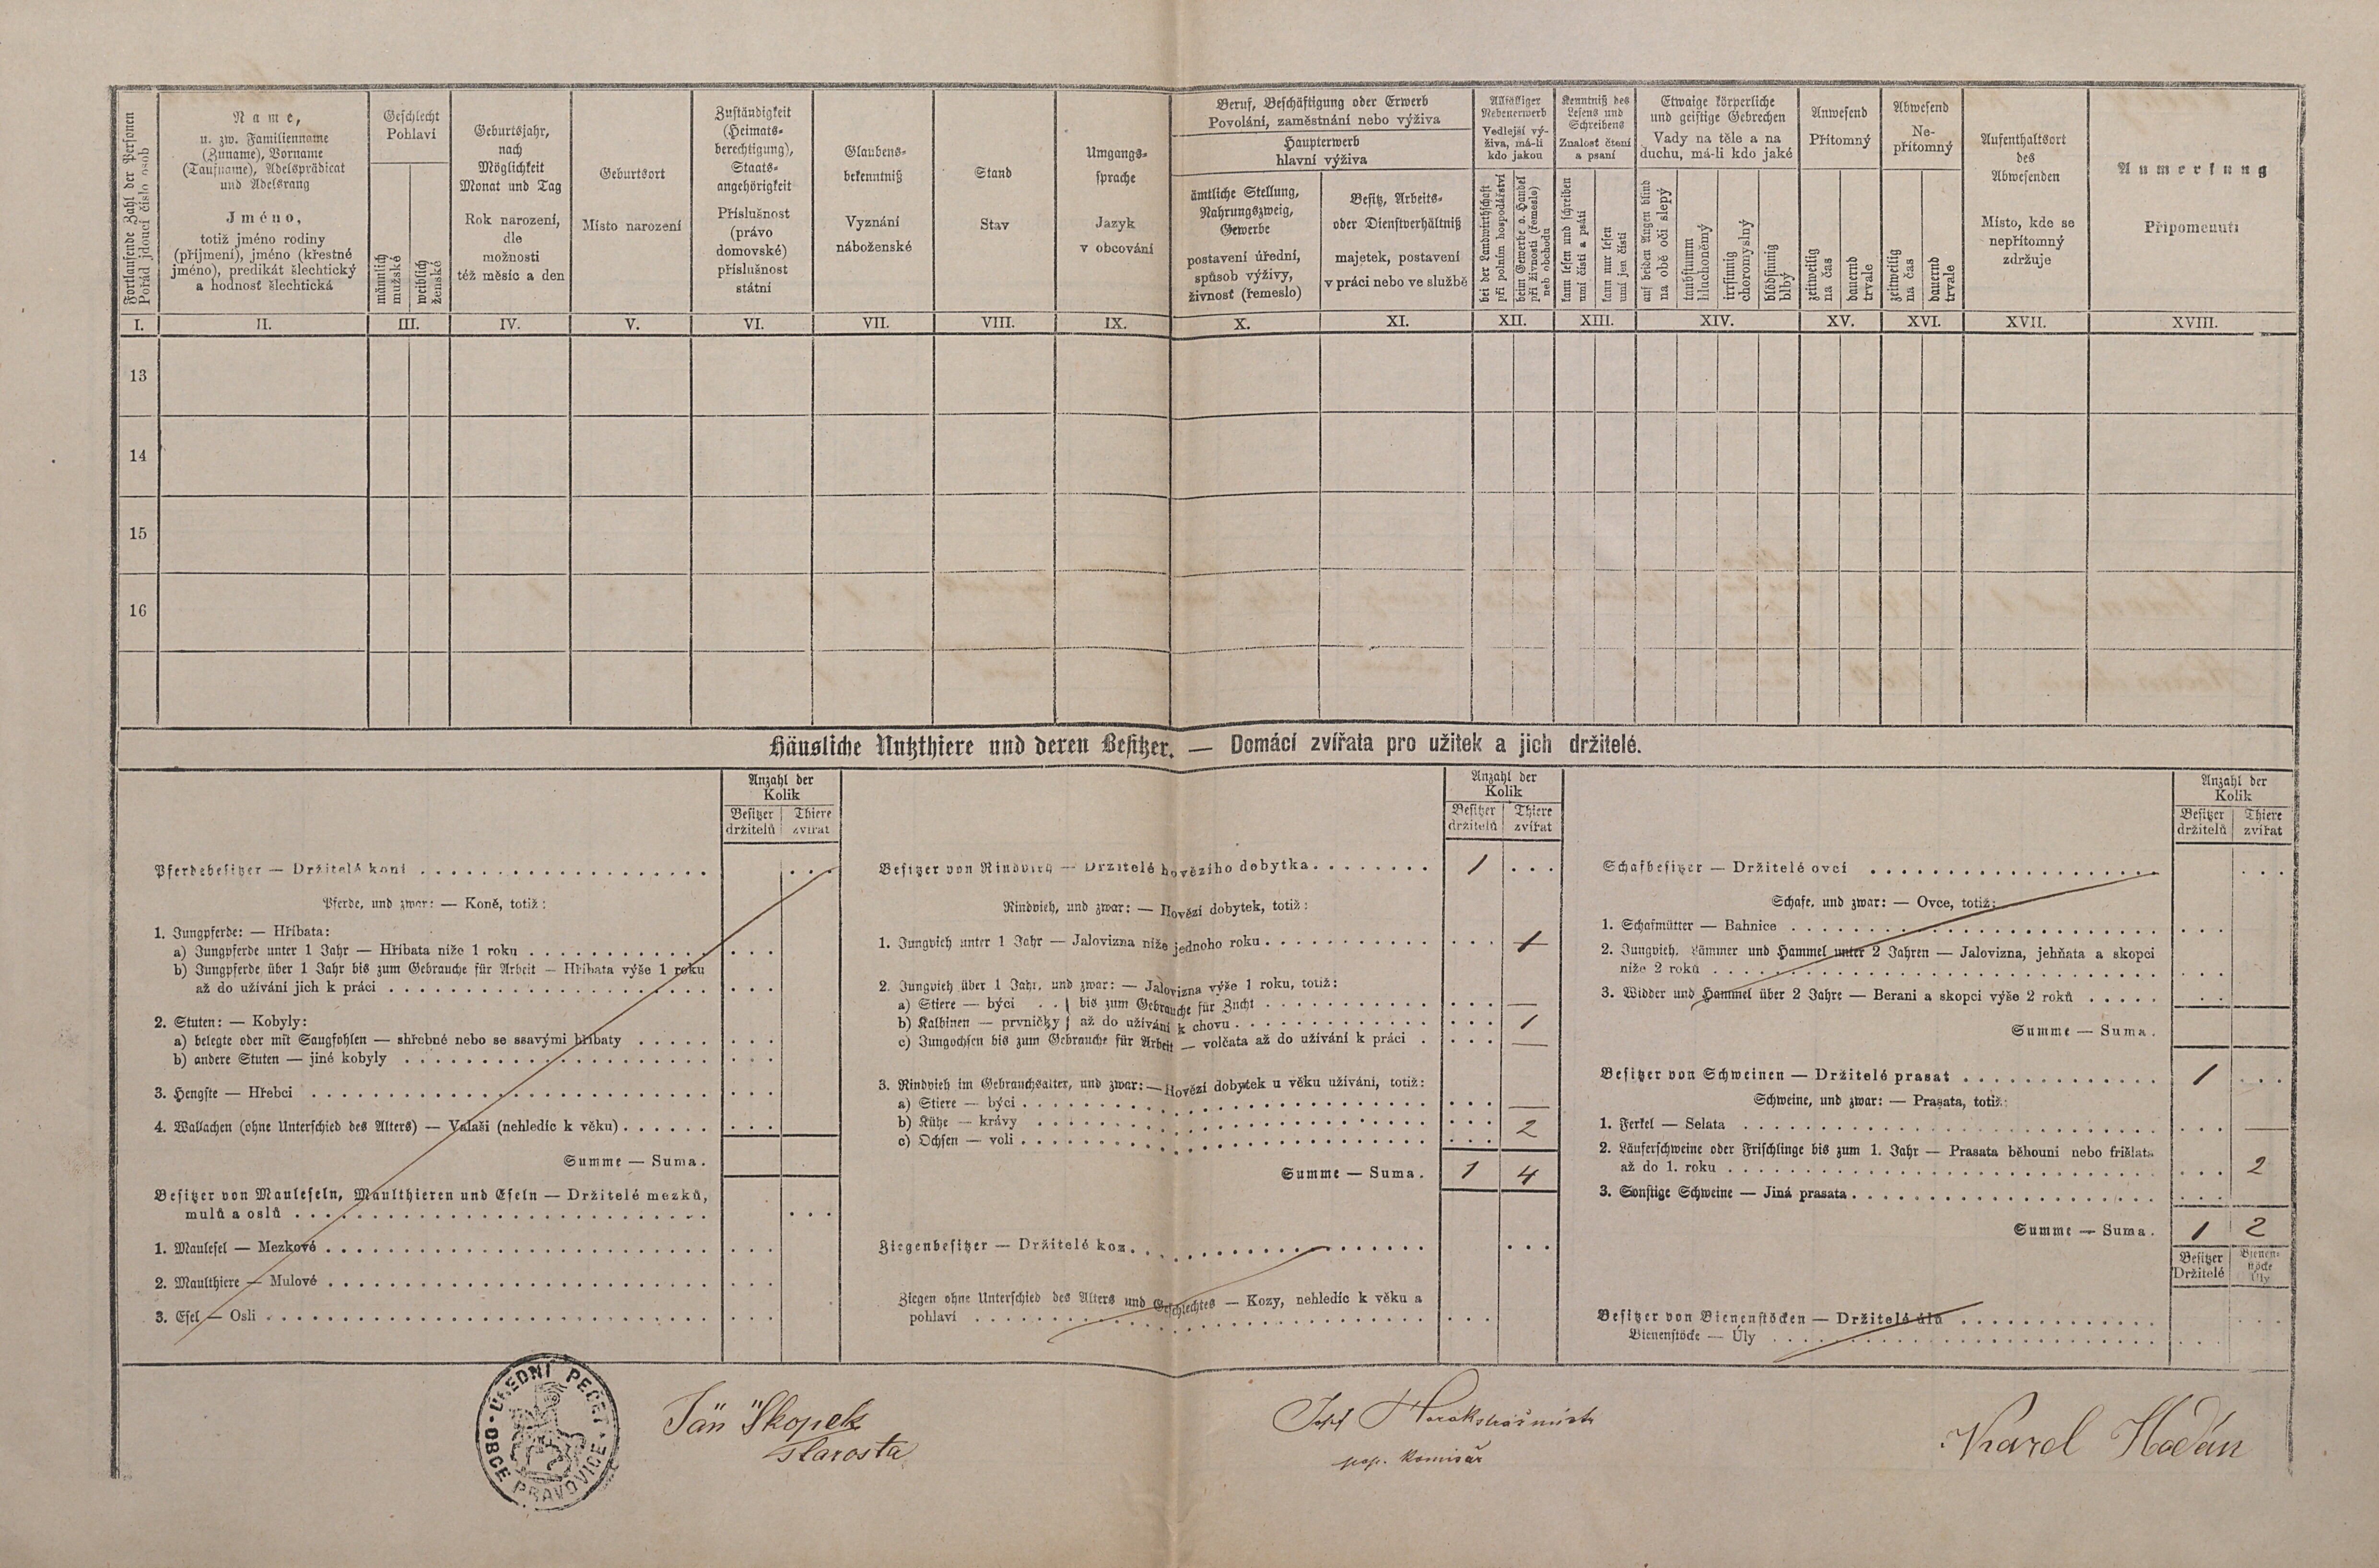 Fortlaufende Zahl der Personen
Pořád jdoucí číslo osob
Name,
u. zw. Familienname
(Zuname), Vorname
(Taufname), Adelsprädicat
und Adelsrang
Jméno,
totiž jméno rodiny
(příjmení), jméno (křestné
jméno), predikát šlechtický
a hodnosť šlechtická
Geschlecht
Pohlaví
männlich
mužské
weiblich
ženské
Geburtsjahr,
nach
Möglichkeit
Monat und Tag
Rok narození,
dle
možnosti
též měsíc a den
Geburtsort
Místo narození
Zuständigkeit
(Heimats-
berechtigung),
Staats-
angehörigkeit
Příslušnost
(právo
domovské)
příslušnost
státní
Glaubens-
bekenntniß
Vyznání
náboženské
Stand
Stav
Umgangs-
sprache
Jazyk
v obcování
Beruf, Beschäftigung oder Erwerb
Povolání, zaměstnání nebo výživa
Haupterwerb
hlavní výživa
ämtliche Stellung,
Nahrungszweig,
Gewerbe
postavení úřední,
spůsob výživy,
živnosť (řemeslo)
Besitz, Arbeits-
oder Dienstverhältniß
majetek, postavení
v práci nebo ve službě
Allfälliger
Nebenerwerb
Vedlejší vý-
živa, má-li
kdo jakou
bei der Landwirthschaft
při polním hospodářství
beim Gewerbe o. Handel
při živnosti (řemeslo)
neb obchodu
Kenntniß des
Lesens und
Schreibens
Znalosť čtení
a psaní
kann lesen und schreiben
umí čísti a psáti
kann nur lesen
umí jen čísti
Etwaige körperliche
und geistige Gebrechen
Vady na těle a na
duchu, má-li kdo jaké
auf beiden Augen blind
na obě oči slepý
taubstumm
hluchoněmý
irrsinnig
choromyslný
blödsinnig
blbý
Anwesend
Přítomný
zeitweilig
na čas
dauernd
trvale
Abwesend
Ne-
přítomný
zeitweilig
na čas
dauernd
trvale
Aufenthaltsort
des
Abwesenden
Místo, kde se
nepřítomný
zdržuje
Anmerkung
Připomenutí
I. II. III. IV. V. VI. VII. VIII. IX. X. XI. XII. XIII. XIV. XV. XVI. XVII. XVIII.
13
14
15
16
Häusliche Nutzthiere und deren Besitzer. — Domácí zvířata pro užitek a jich držitelé.
Anzahl der
Kolik
Besitzer
držitelů
Thiere
zvířat
Pferdebesitzer — Držitelé koní
Pferde, und zwar: — Koně, totiž:
1. Jungpferde: — Hříbata:
a) Jungpferde unter 1 Jahr — Hříbata níže 1 roku
b) Jungpferde über 1 Jahr bis zum Gebrauche für Arbeit — Hříbata výše 1 roku
až do užívání jich k práci
2. Stuten: — Kobyly:
a) belegte oder mit Saugfohlen — shřebné nebo se ssavými hříbaty
b) andere Stuten — jiné kobyly
3. Hengste — Hřebci
4. Wallachen (ohne Unterschied des Alters) — Valaši (nehledíc k věku)
Summe — Suma.
Besitzer von Mauleseln, Maulthieren und Eseln — Držitelé mezků,
mulů a oslů
1. Maulesel — Mezkové
2. Maulthiere — Mulové
3. Esel — Osli
Anzahl der
Kolik
Besitzer
držitelů
Thiere
zvířat
Besitzer von Rindvieh — Držitelé hovězího dobytka 1
Rindvieh, und zwar: — Hovězí dobytek, totiž:
1. Jungvieh unter 1 Jahr — Jalovizna níže jednoho roku 1
2. Jungvieh über 1 Jahr, und zwar: — Jalovizna výše 1 roku, totiž:
a) Stiere — býci } bis zum Gebrauche für Zucht —
b) Kalbinen — prvničky } až do užívání k chovu 1
c) Jungochsen bis zum Gebrauche für Arbeit — volčata až do užívání k práci —
3. Rindvieh im Gebrauchsalter, und zwar: — Hovězí dobytek u věku užívání, totiž:
a) Stiere — býci —
b) Kühe — krávy 2
c) Ochsen — voli
Summe — Suma. 1 4
Ziegenbesitzer — Držitelé koz
Ziegen ohne Unterschied des Alters und Geschlechtes — Kozy, nehledíc k věku a
pohlaví
Anzahl der
Kolik
Besitzer
držitelů
Thiere
zvířat
Schafbesitzer — Držitelé ovcí
Schafe, und zwar: — Ovce, totiž:
1. Schafmütter — Bahnice
2. Jungvieh, Lämmer und Hammel unter 2 Jahren — Jalovizna, jehňata a skopci
níže 2 roků
3. Widder und Hammel über 2 Jahre — Berani a skopci výše 2 roků
Summe — Suma.
Besitzer von Schweinen — Držitelé prasat 1
Schweine, und zwar: — Prasata, totiž:
1. Ferkel — Selata —
2. Läuferschweine oder Frischlinge bis zum 1. Jahr — Prasata běhouni nebo frišlata
až do 1. roku 2
3. Sonstige Schweine — Jiná prasata
Summe — Suma. 1 2
Besitzer
Držitelé
Bienen-
stöcke
Úly
Besitzer von Bienenstöcken — Držitelé úlů
Bienenstöcke — Úly
ÚŘEDNÍ PEČEŤ
OBCE PRAVOVICE
Ján Skopek
starosta
pop. komisař
Karel Hadán